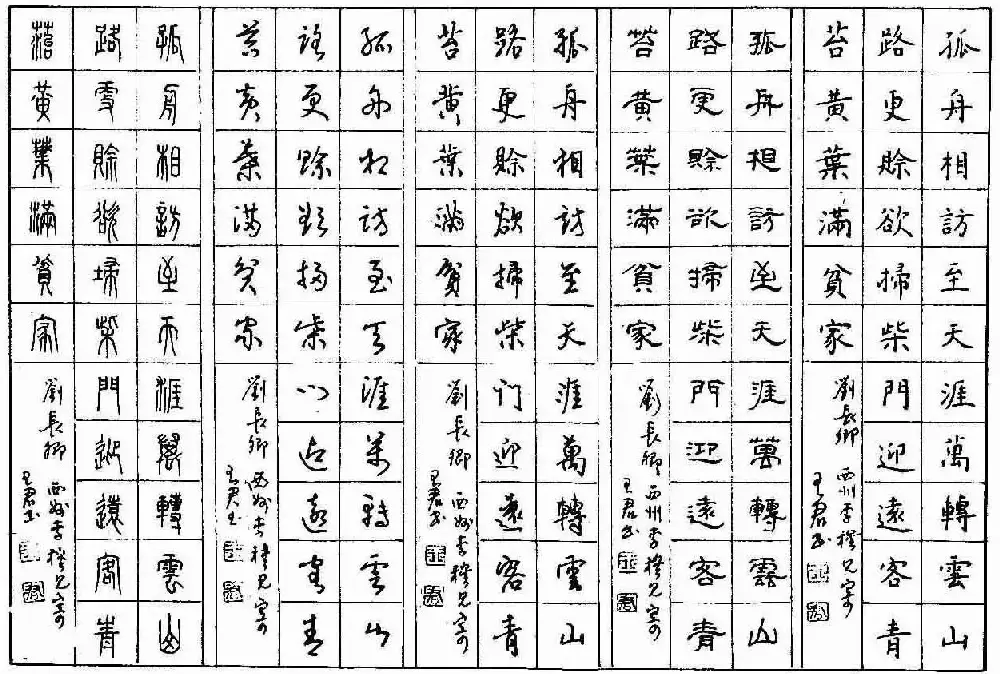 孤舟相訪至天涯萬轉雲山
路更賒欲掃柴門迎遠客青
苔黃葉滿貧家 劉長卿 酬李穆見寄
王君書
孤舟相訪至天涯萬轉雲山
路更賒欲掃柴門迎遠客青
苔黃葉滿貧家 劉長卿 酬李穆見寄
王君書
孤舟相訪至天涯萬轉雲山
路更賒欲掃柴門迎遠客青
苔黃葉滿貧家 劉長卿 酬李穆見寄
王君書
孤舟相訪至天涯萬轉雲山
路更賒欲掃柴門迎遠客青
苔黃葉滿貧家 劉長卿 酬李穆見寄
王君書
孤舟相訪至天涯萬轉雲山
路更賒欲掃柴門迎遠客青
苔黃葉滿貧家 劉長卿 酬李穆見寄
王君書